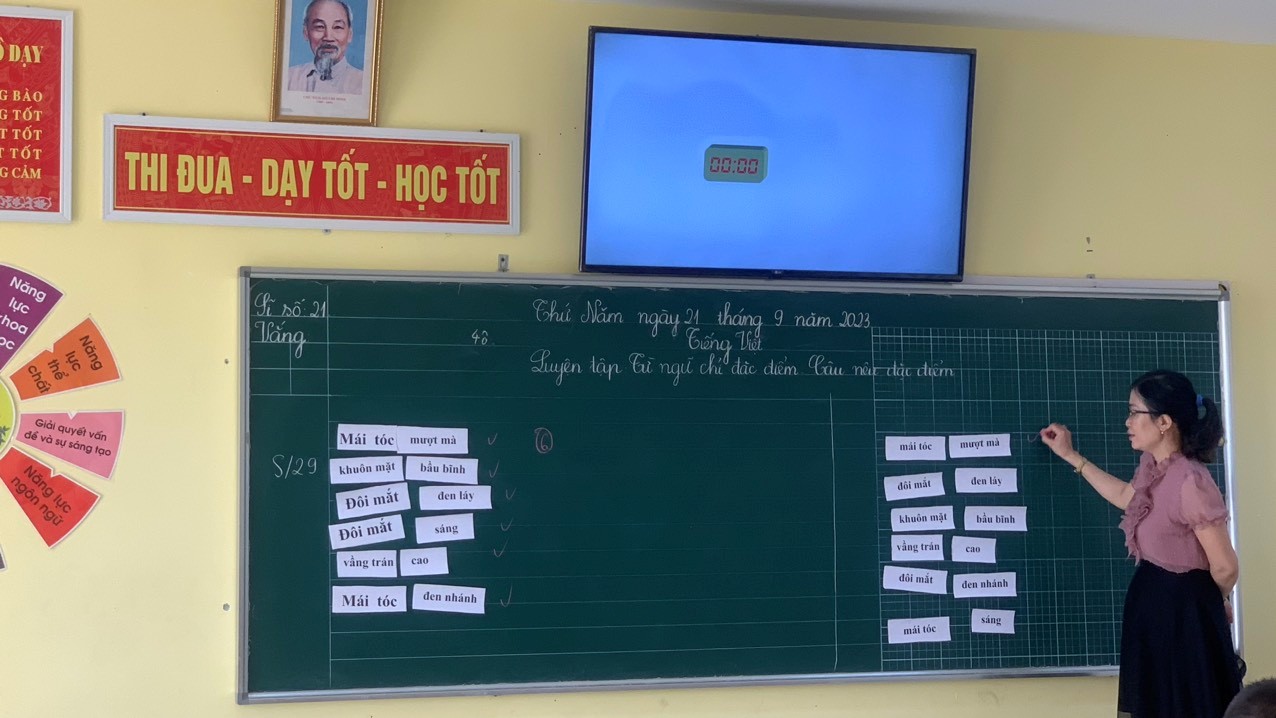 DẠY
BẢO
TỐT
TỐT
TỐT
CẢM
THI ĐUA - DẠY TỐT - HỌC TỐT
00:00
Năng lực
Năng lực thể chất
Giải quyết vấn đề và sự sáng tạo
Năng lực ngôn ngữ
Sĩ số: 21
Vắng
Thứ Năm ngày 21 tháng 9 năm 2023
Tiếng Việt
Luyện tập Từ ngữ chỉ đặc điểm Câu nêu đặc điểm
S/29
Mái tóc mượt mà
khuôn mặt bầu bĩnh
Đôi mắt đen láy
Đôi mắt sáng
vầng trán cao
Mái tóc đen nhánh
6
mái tóc mượt mà
đôi mắt đen láy
khuôn mặt bầu bĩnh
vầng trán cao
đôi mắt đen nhánh
mái tóc sáng